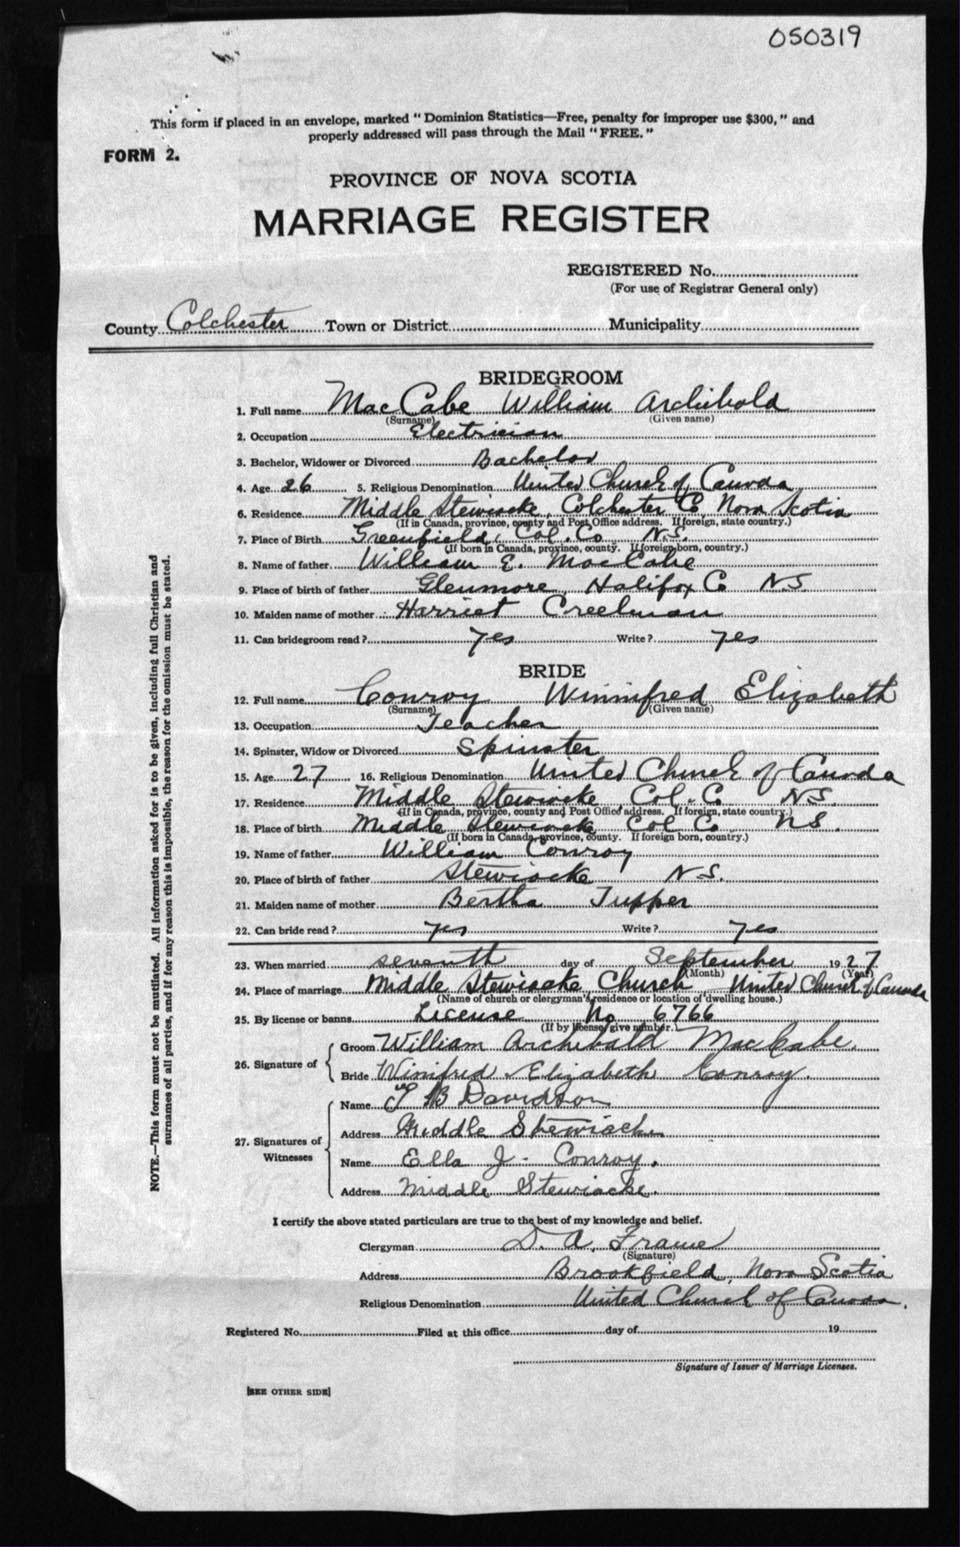 050319
This form if placed in an envelope, marked "Dominion Statistics—Free, penalty for improper use $300," and
properly addressed will pass through the Mail "FREE."
FORM 2.
PROVINCE OF NOVA SCOTIA
MARRIAGE REGISTER
REGISTERED No.
(For use of Registrar General only)
County Colchester Town or District Municipality
BRIDEGROOM
1. Full name MacCabe William Archibald
(Surname) (Given name)
2. Occupation Electrician
3. Bachelor, Widower or Divorced Bachelor
4. Age 26 5. Religious Denomination United Church of Canada
6. Residence Middle Stewiacke, Colchester Co, Nova Scotia
(If in Canada, province, county and Post Office address. If foreign, state country.)
7. Place of Birth Greenfield, Col. Co N.S.
(If born in Canada, province, county. If foreign born, country.)
8. Name of father William E. MacCabe
9. Place of birth of father Glenmore Halifax Co N.S.
10. Maiden name of mother Harriet Creelman
11. Can bridegroom read? yes Write? yes
BRIDE
12. Full name Conroy Winnifred Elizabeth
(Surname) (Given name)
13. Occupation Teacher
14. Spinster, Widow or Divorced Spinster
15. Age 27 16. Religious Denomination United Church of Canada
17. Residence Middle Stewiacke Col. C. N.S.
(If in Canada, province, county and Post Office address. If foreign, state country.)
18. Place of birth Middle Stewiacke Col Co. N.S.
(If born in Canada, province, county. If foreign born, country.)
19. Name of father William Conroy
20. Place of birth of father Stewiacke N.S.
21. Maiden name of mother Bertha Tupper
22. Can bride read? yes Write? yes
23. When married seventh day of September 1927
(Month) (Year)
24. Place of marriage Middle Stewiacke Church United Church of Canada
(Name of church or clergyman's residence or location of dwelling house.)
25. By license or banns License No 6766
(If by license, give number.)
26. Signature of
Groom William Archibald MacCabe.
Bride Winifred Elizabeth Conroy.
27. Signatures of Witnesses
Name B Davidson
Address Middle Stewiacke
Name Ella J. Conroy.
Address Middle Stewiacke.
I certify the above stated particulars are true to the best of my knowledge and belief.
Clergyman D. A. Frame
(Signature)
Address Brookfield, Nova Scotia
Religious Denomination United Church of Canada.
Registered No. Filed at this office day of 19
Signature of Issuer of Marriage Licenses.
[SEE OTHER SIDE]
NOTE.—This form must not be mutilated. All information asked for is to be given, including full Christian and
surnames of all parties, and if for any reason this is impossible, the reason for the omission must be stated.